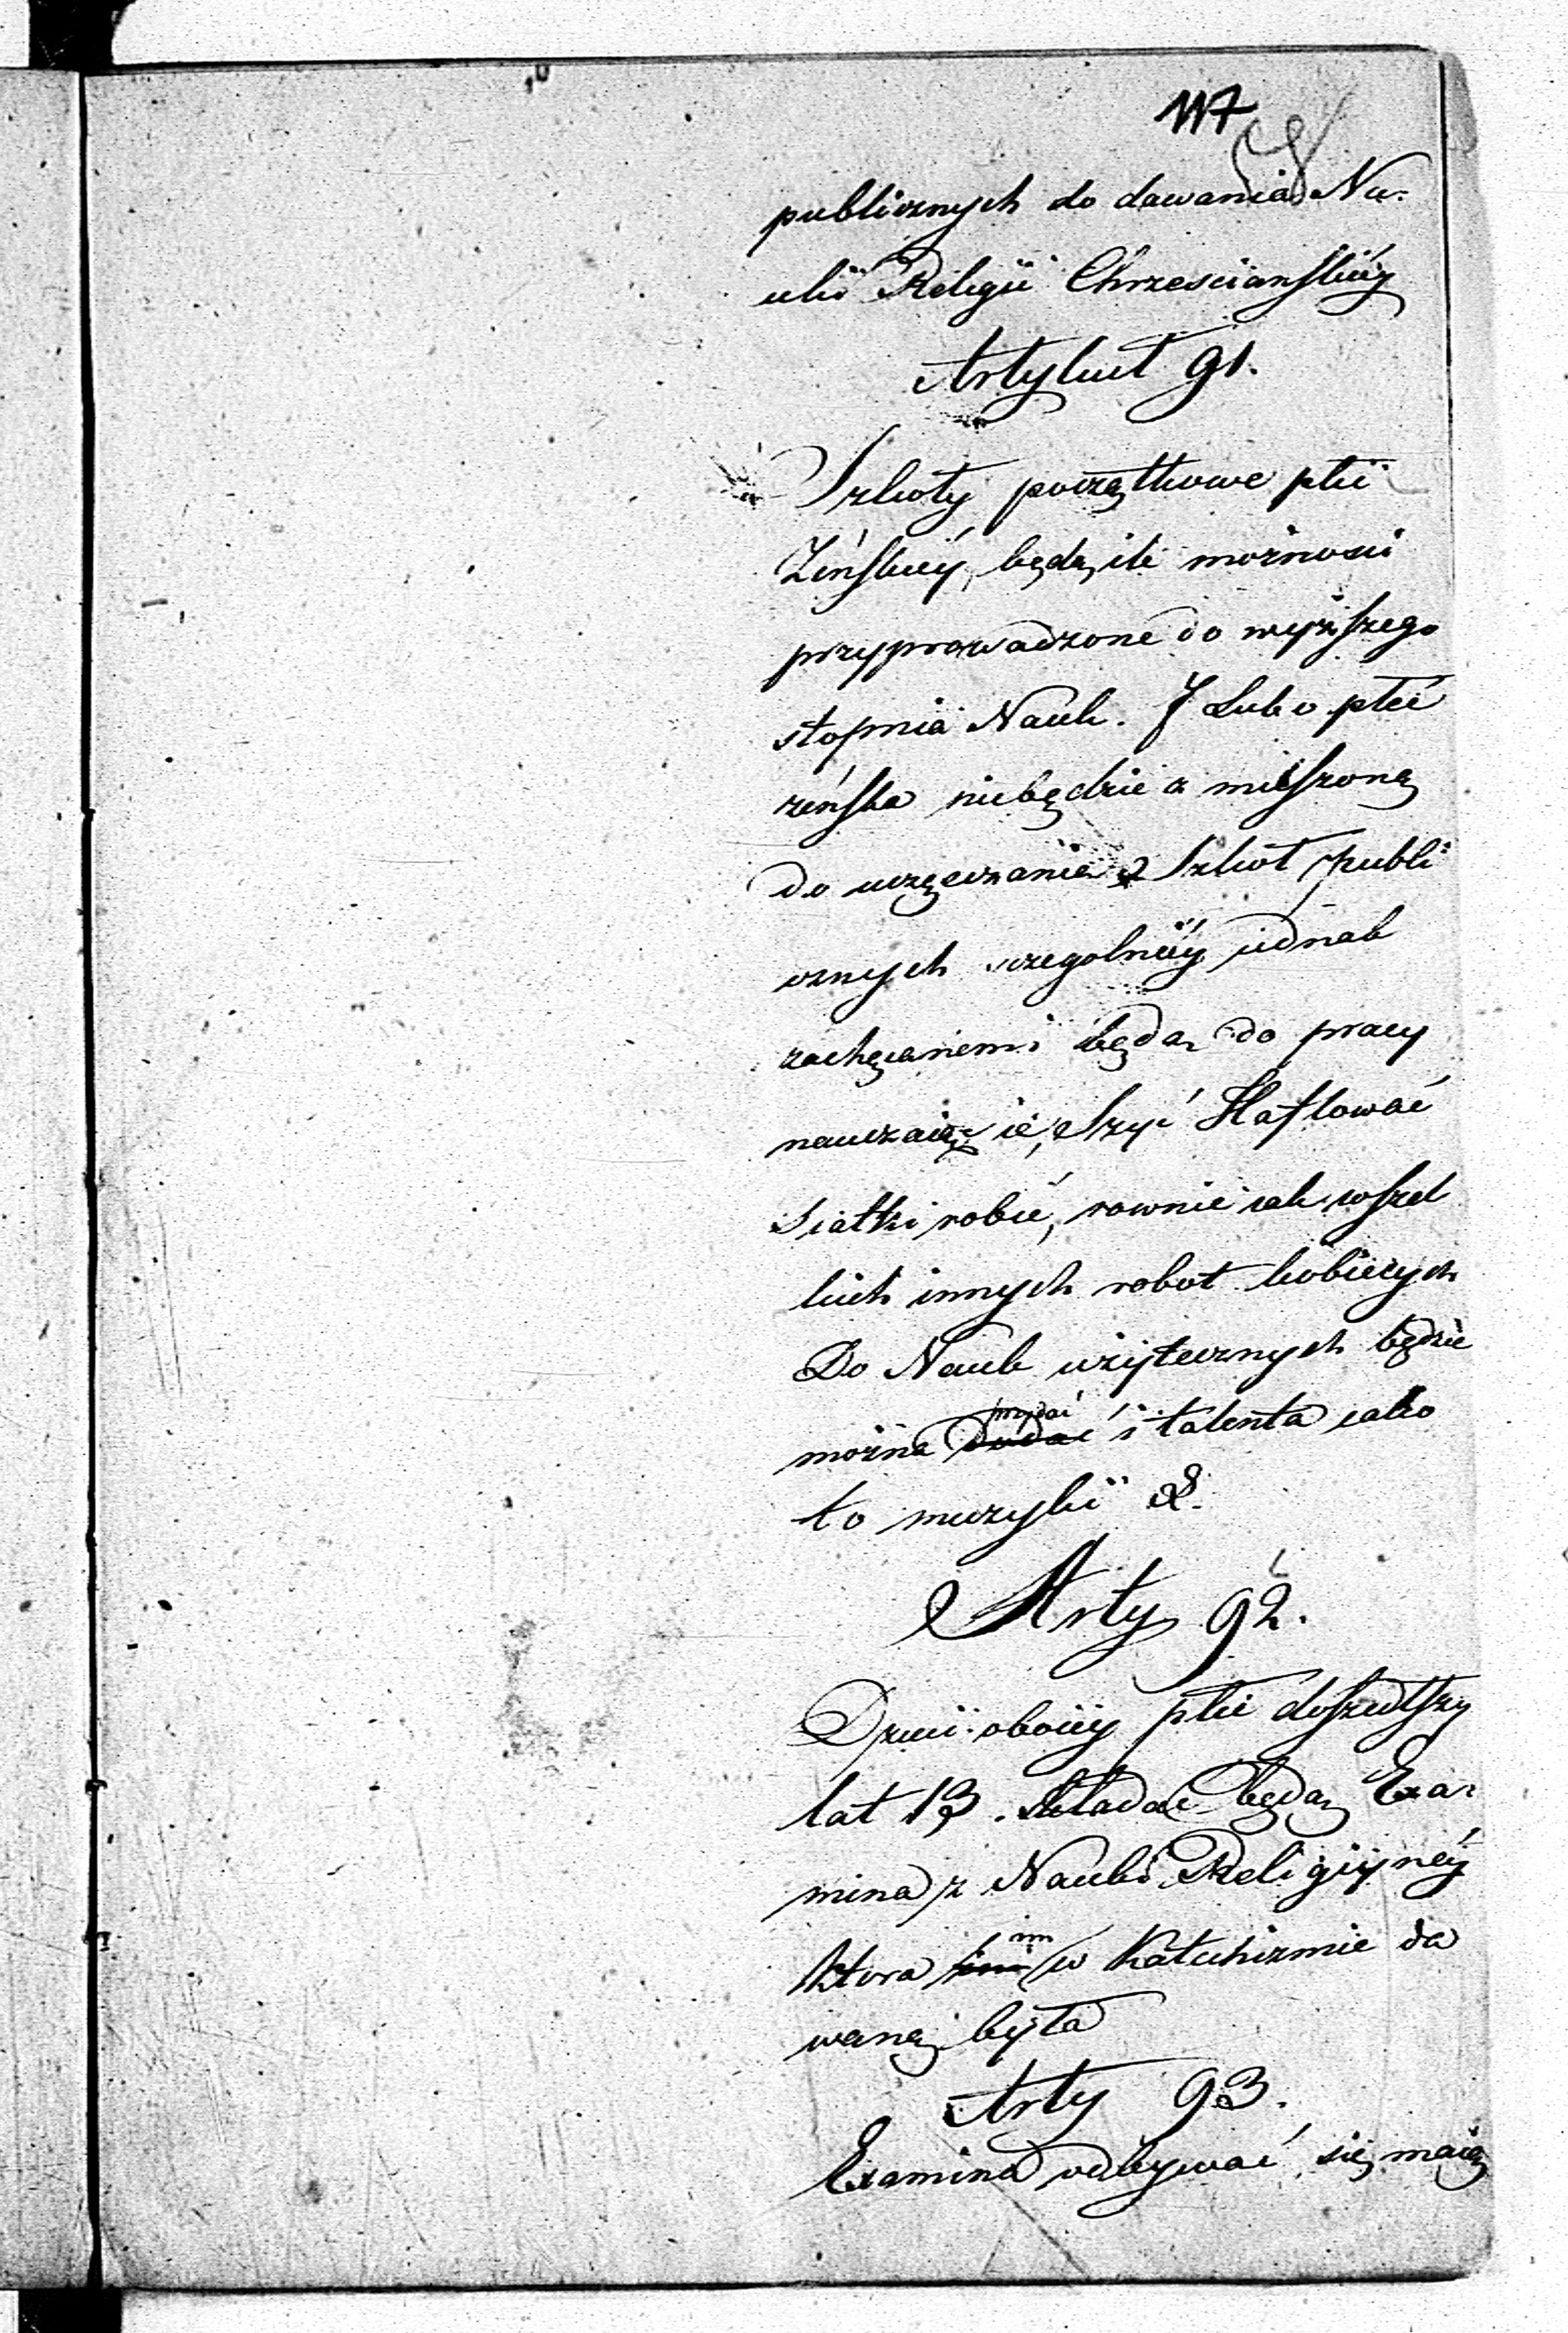 117
publicznych do dawania Na-
uki Religii Chrzescianskiéy
Artykuł 91.
Szkoły początkowe płci
Żeńskiéy, będą ile możnosci
przyprowadzone do wyższego
stopnia Nauk. J Lubo płeć
żeńska niebędzie zmuszoną
do uczęszczania Szkoł publi
cznych szczegolniéy iednak
zachęcanemi będą do pracy
nauczaiąc ie, Szyć Haftować
Siatki robić, rownie iak wszel
kich innych robot kobiecych
Do Nauk użytecznych będzie
można dodać przydać i talenta iako
to muzyki &.
Arty 92.
Dzieci oboiéy płci doszedłszy
lat 13. składać będą Exa-
mina z Nauki Religiynéy
ktora im w Katechizmie da
waną była
Arty 93.
Examina odbywać się maią